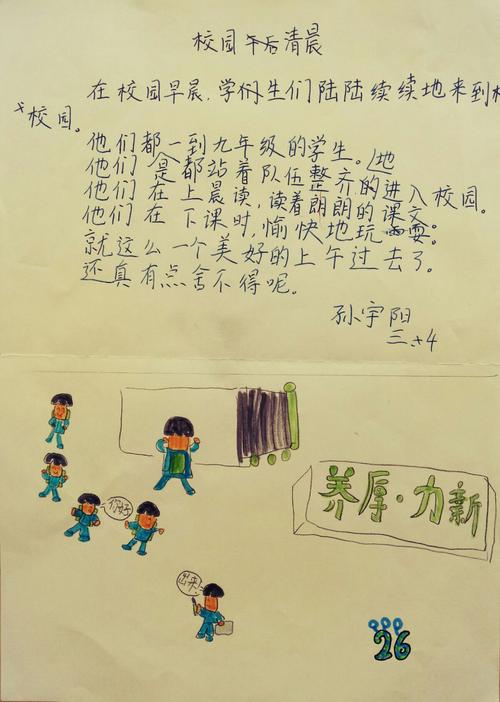 校园午后清晨
在校园早晨，学们生们陆陆续续地来到校
校园。
他们都一到九年级的学生。
他们是都站着队伍整齐的进入校园。
他们在上晨读，读着朗朗的课文。
他们在下课时，愉快地玩耍。
就这么一个美好的上午过去了。
还真有点舍不得呢。
孙宇阳
三.4
你好
养厚·力新
出来!
26